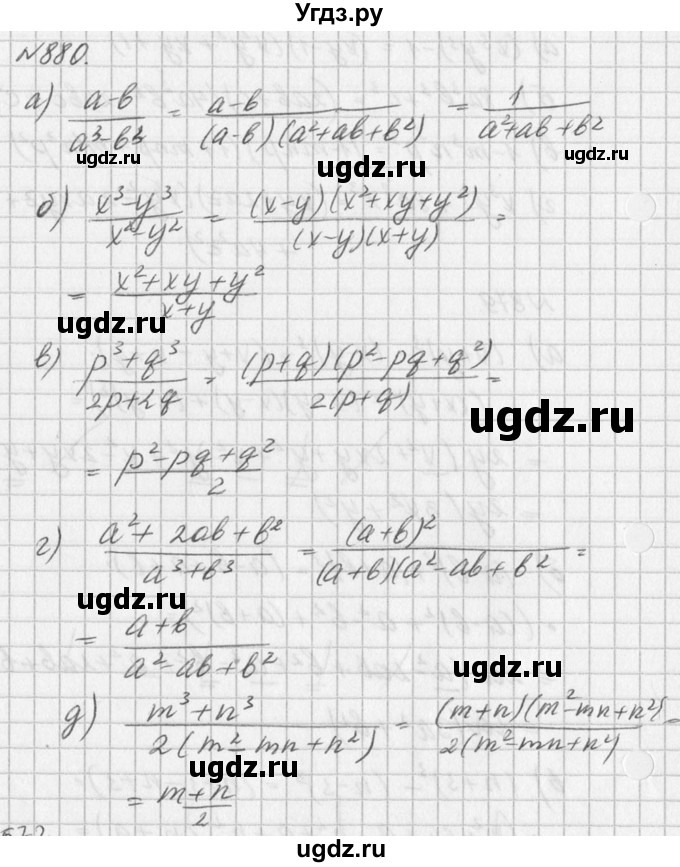 Угдз.ру
№880.
а) (a-b)/(a³-b³) = (a-b)/((a-b)(a²+ab+b²)) = 1/(a²+ab+b²)
ugdz.ru ugdz.ru ugdz.ru
б) (x³-y³)/(x²-y²) = ((x-y)(x²+xy+y²))/((x-y)(x+y)) =
= (x²+xy+y²)/(x+y)
ugdz.ru
в) (p³+q³)/(2p+2q) = ((p+q)(p²-pq+q²))/(2(p+q)) =
ugdz.ru
= (p²-pq+q²)/2
г) (a²+2ab+b²)/(a³+b³) = (a+b)²/((a+b)(a²-ab+b² =
ugdz.ru
= (a+b)/(a²-ab+b²)
ugdz.ru
д) (m³+n³)/(2(m²-mn+n²)) = ((m+n)(m²-mn+n²))/(2(m²-mn+n²)) =
ugdz.ru ugdz.ru
= (m+n)/2
ugdz.ru